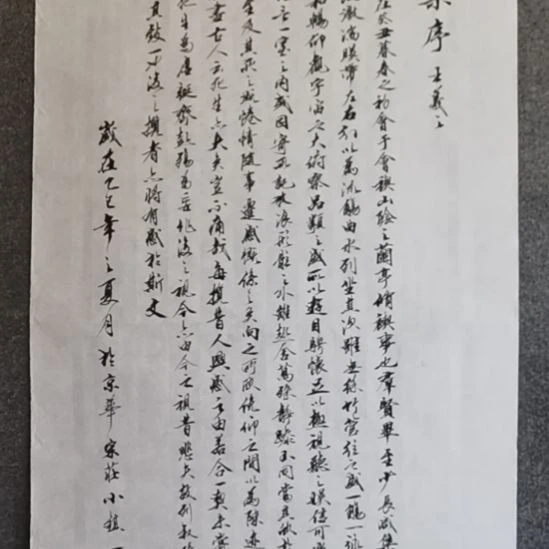 集序 王羲之
在癸丑暮春之初會于會稽山陰之蘭亭脩禊事也羣賢畢至少長咸集
激湍映帶左右引以為流觴曲水列坐其次雖無絲竹管弦之盛一觴一詠
和暢仰觀宇宙之大俯察品類之盛所以遊目騁懷足以極視聽之娛信可樂
言一室之內或因寄所託放浪形骸之外雖趣舍萬殊靜躁不同當其欣於
至及其所之既惓情隨事遷感慨係之矣向之所欣俛仰之間以為陳迹
盡古人云死生亦大矣豈不痛哉每攬昔人興感之由若合一契未嘗
死生為虛誕齊彭殤為妄作後之視今亦由今之視昔悲夫故列敘時
其致一也後之攬者亦將有感於斯文
歲在乙巳年之夏月於京華宋莊小